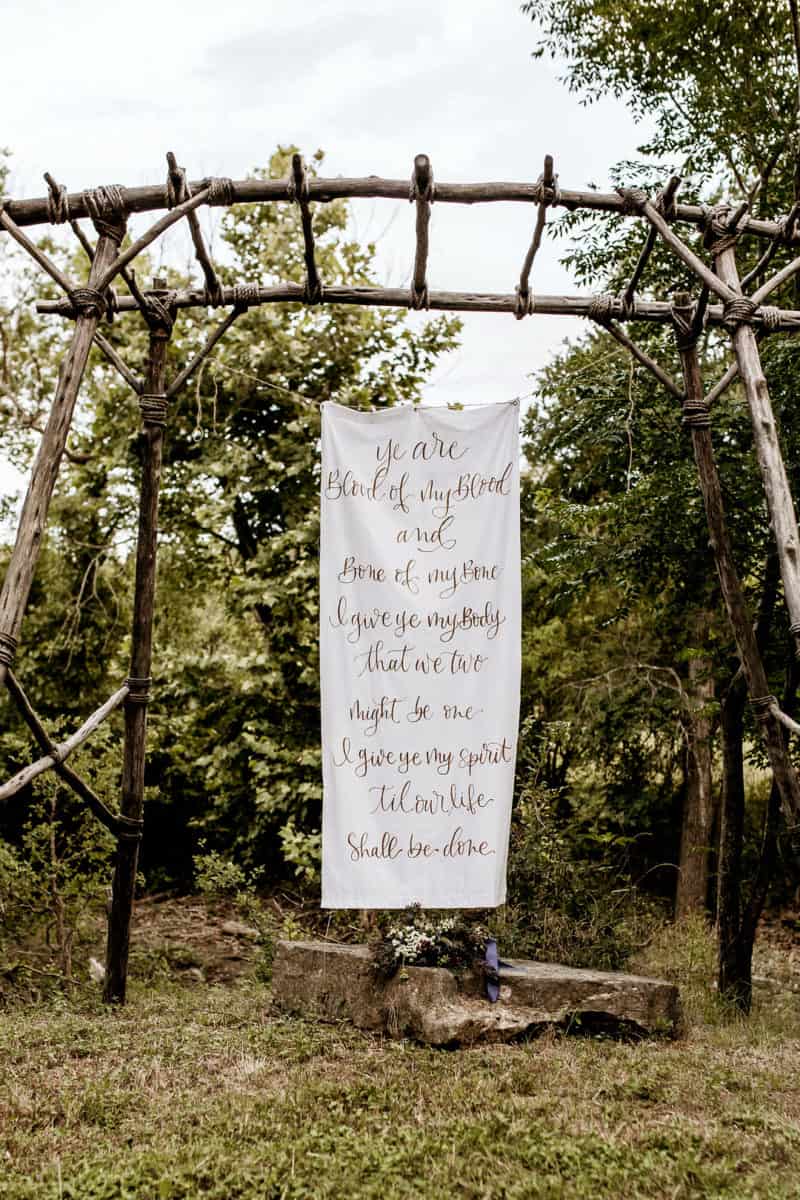 ye are
Blood of my Blood
and
Bone of my Bone
I give ye my Body
that we two
might be one
I give ye my spirit
'til our life
Shall be done.